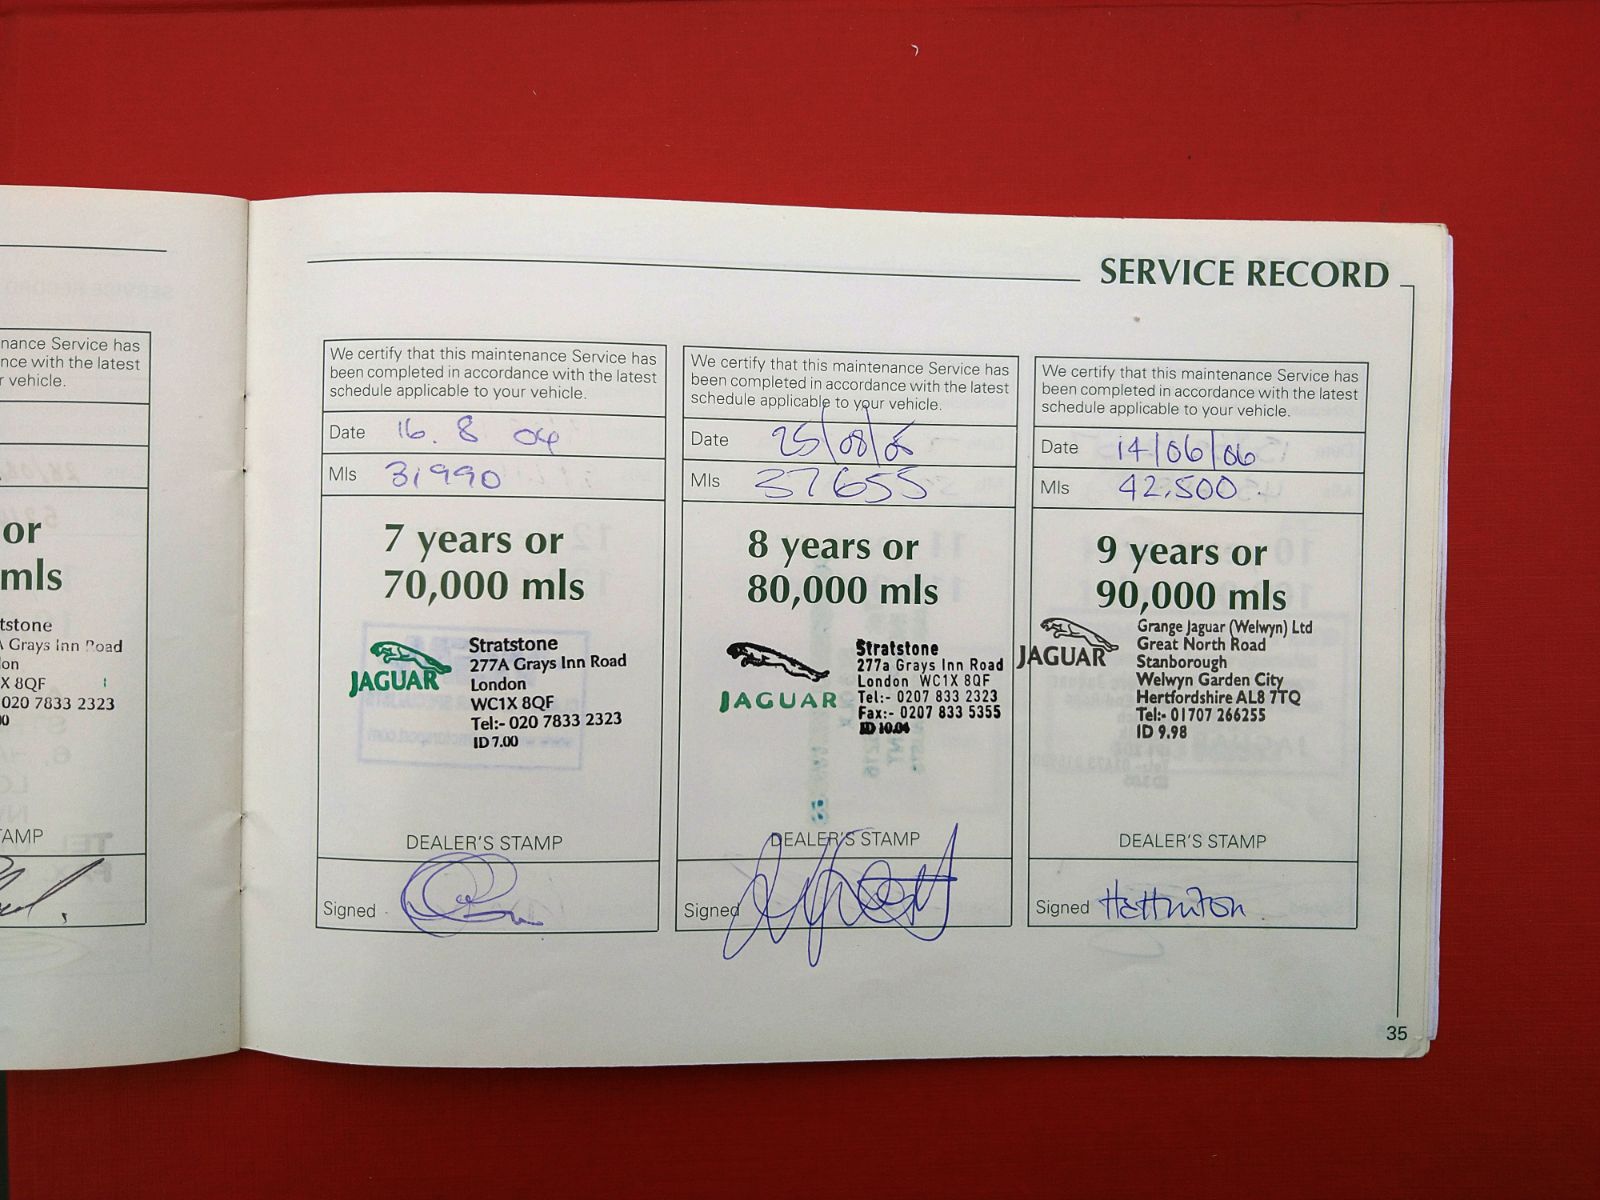 nance Service has
nce with the latest
r vehicle.
or
mls
tstone
A Grays Inn Road
on
X 8QF
020 7833 2323
00
AMP
SERVICE RECORD
We certify that this maintenance Service has
been completed in accordance with the latest
schedule applicable to your vehicle.
Date 16. 8 04
Mls 31990
7 years or
70,000 mls
JAGUAR
Stratstone
277A Grays Inn Road
London
WC1X 8QF
Tel:- 020 7833 2323
ID 7.00
DEALER'S STAMP
Signed
We certify that this maintenance Service has
been completed in accordance with the latest
schedule applicable to your vehicle.
Date 25/08/05
Mls 37655
8 years or
80,000 mls
JAGUAR
Stratstone
277a Grays Inn Road
London WC1X 8QF
Tel:- 0207 833 2323
Fax:- 0207 833 5355
ID 10.04
DEALER'S STAMP
Signed
We certify that this maintenance Service has
been completed in accordance with the latest
schedule applicable to your vehicle.
Date 14/06/06
Mls 42,500.
9 years or
90,000 mls
JAGUAR
Grange Jaguar (Welwyn) Ltd
Great North Road
Stanborough
Welwyn Garden City
Hertfordshire AL8 7TQ
Tel:- 01707 266255
ID 9.98
DEALER'S STAMP
Signed
35